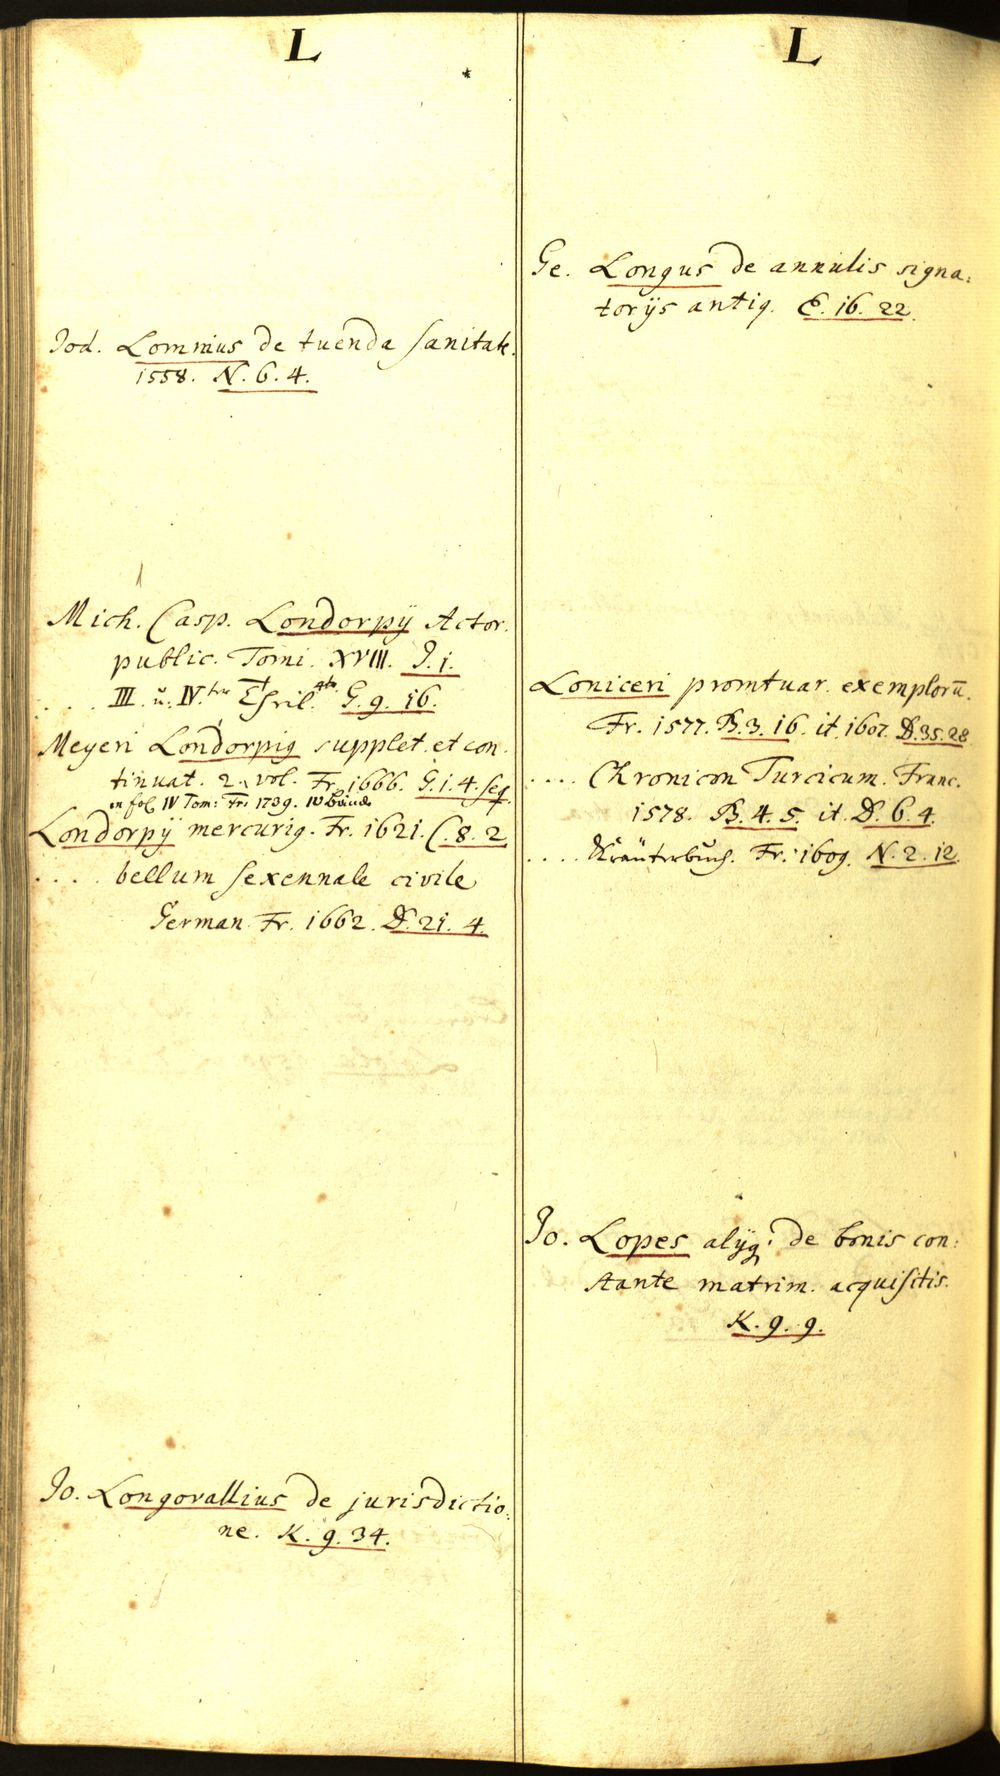 L
Jod. Lomnius de tuenda sanitate.
1558. N. 6. 4.
Mich. Casp. Londorpÿ Actor.
public. Tomi. XVIII. J. 1.
. . . . III. u. IV.ter G. 9. 16.
Meyeri Londorpig supplet. et con.
tinuat. 2. vol. Fr. 1666. G. 1. 4. seq.
in fol IV Tom: Fr: 1739. IV Bände
Londorpÿ mercurig. Fr. 1621. C. 8. 2
. . . . bellum sexennale civile
German. Fr. 1662. D. 21. 4.
Jo. Longovallius de jurisdictio:
ne. K. 9. 34.
L
Ge. Longus de annulis signa:
torÿs antiq. E. 16. 22.
Loniceri promtuar. exemplorū.
Fr. 1577. B. 3. 16. it. 1607. D. 35. 28
. . . . Chronicon Turcicum. Franc.
1578. B. 4. 5. it. D. 6. 4.
. . . . Kräuterbuch. Fr. 1609. N. 2. 12.
Jo. Lopes alÿq. de bonis con:
stante matrim. acquisitis.
K. 9. 9.